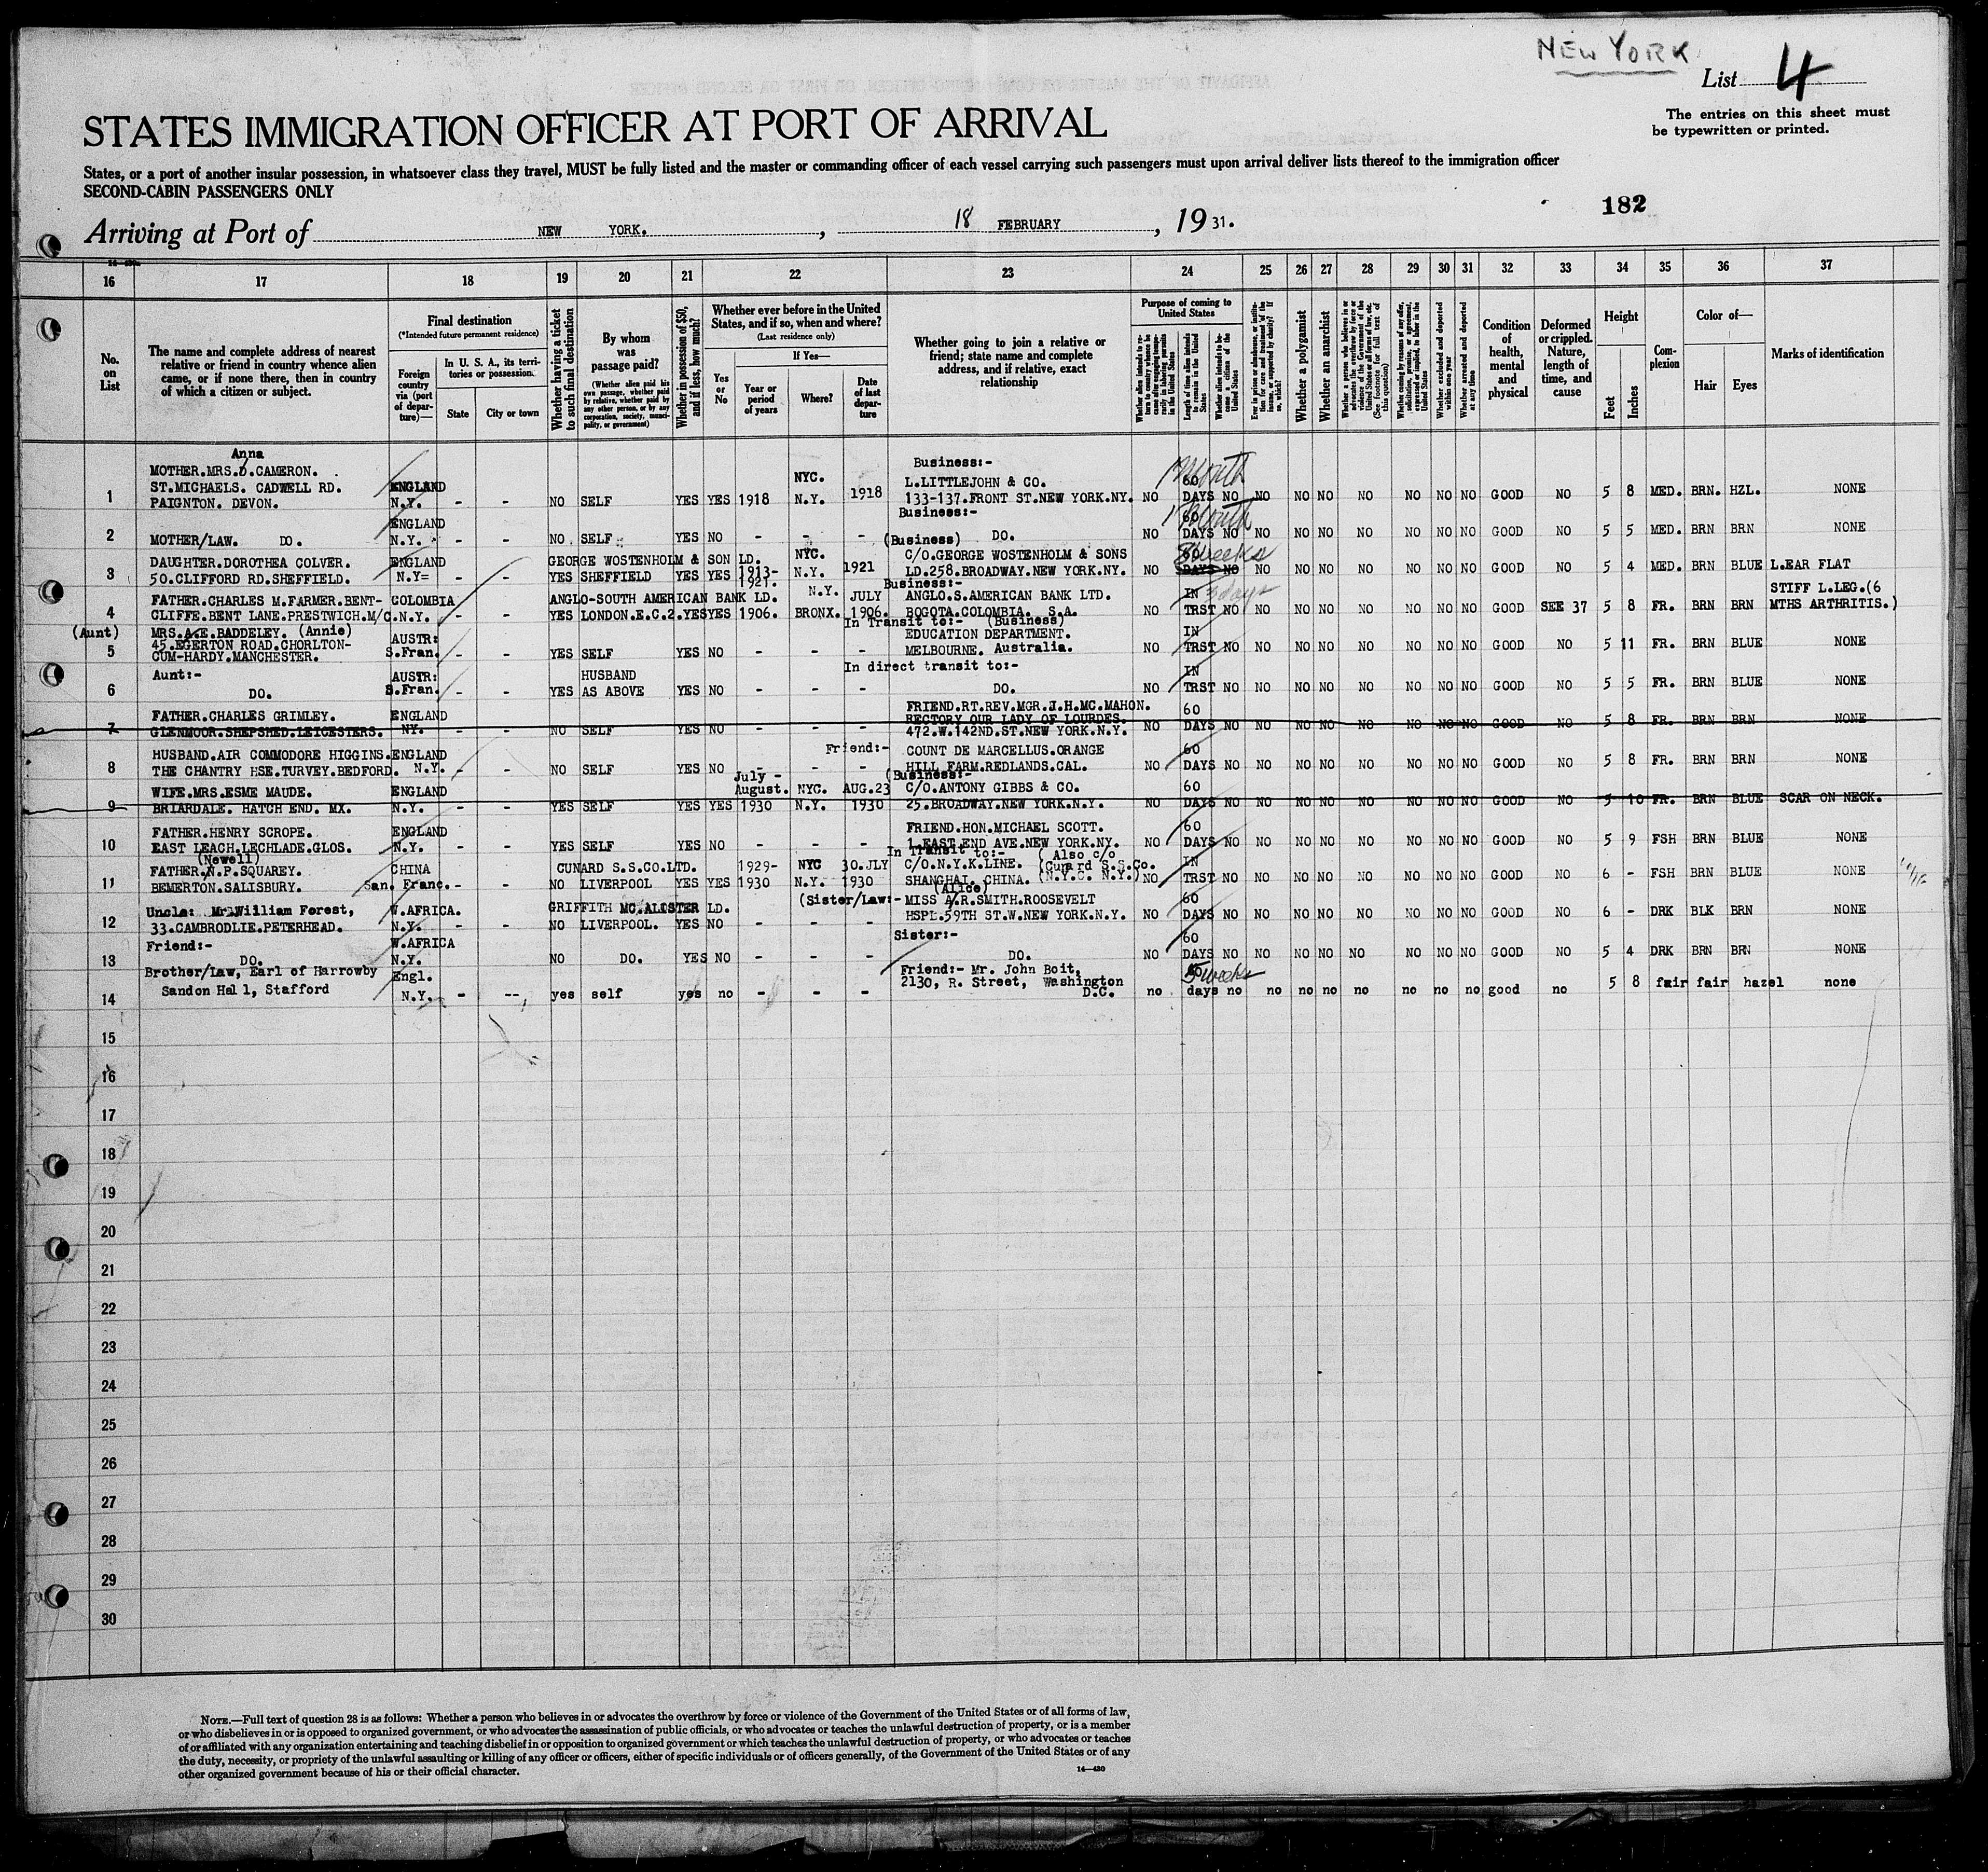 NEW YORK
List 4
The entries on this sheet must
be typewritten or printed.
STATES IMMIGRATION OFFICER AT PORT OF ARRIVAL
States, or a port of another insular possession, in whatsoever class they travel, MUST be fully listed and the master or commanding officer of each vessel carrying such passengers must upon arrival deliver lists thereof to the immigration officer
SECOND-CABIN PASSENGERS ONLY
182
Arriving at Port of NEW YORK. , 18 FEBRUARY , 19 31.
16 17 18 19 20 21 22 23 24 25 26 27 28 29 30 31 32 33 34 35 36 37
No. on List
The name and complete address of nearest relative or friend in country whence alien came, or if none there, then in country of which a citizen or subject.
Final destination
(*Intended future permanent residence)
Foreign country via (port of departure)—
In U. S. A., its territories or possession.
State
City or town
Whether having a ticket to such final destination
By whom was passage paid?
(Whether alien paid his own passage, whether paid by relative, whether paid by any other person, or by any corporation, society, municipality, or government)
Whether in possession of $50, and if less, how much?
Whether ever before in the United States, and if so, when and where?
(Last residence only)
Yes or No
If Yes—
Year or period of years
Where?
Date of last departure
Whether going to join a relative or friend; state name and complete address, and if relative, exact relationship
Purpose of coming to United States
Length of time alien intends to remain in the United States
Whether alien intends to become a citizen of the United States
Whether a polygamist
Whether an anarchist
Whether excluded and deported within one year
Whether arrested and deported at any time
Condition of health, mental and physical
Deformed or crippled. Nature, length of time, and cause
Height
Feet
Inches
Complexion
Color of—
Hair
Eyes
Marks of identification
Anna
MOTHER.MRS.D.CAMERON. Business:-
ST.MICHAELS. CADWELL RD. ENGLAND NYC. L.LITTLEJOHN & CO. 1 Month 60
1 PAIGNTON. DEVON. N.Y. - - NO SELF YES YES 1918 N.Y. 1918 133-137.FRONT ST.NEW YORK.NY. NO DAYS NO NO NO NO NO NO NO NO GOOD NO 5 8 MED. BRN. HZL. NONE
ENGLAND Business:- 1 Month 60
2 MOTHER/LAW. DO. N.Y. - - NO SELF YES NO - - - DO. NO DAYS NO NO NO NO NO NO NO NO GOOD NO 5 5 MED. BRN BRN NONE
DAUGHTER.DOROTHEA COLVER. ENGLAND GEORGE WOSTENHOLM & SON LD. NYC. (Business) C/O.GEORGE WOSTENHOLM & SONS weeks
3 50.CLIFFORD RD.SHEFFIELD. N.Y= - - YES SHEFFIELD YES YES 1913-1921. N.Y. 1921 LD.258.BROADWAY.NEW YORK.NY. NO DAYS NO NO NO NO NO NO NO NO GOOD NO 5 4 MED. BRN BLUE L.EAR FLAT
FATHER.CHARLES M.FARMER.BENT- COLOMBIA ANGLO-SOUTH AMERICAN BANK LD. N.Y. JULY Business:- ANGLO.S.AMERICAN BANK LTD. IN days STIFF L.LEG.(6
4 CLIFFE.BENT LANE.PRESTWICH.M/C. N.Y. - - YES LONDON.E.C.2. YES YES 1906. BRONX. 1906. BOGOTA.COLOMBIA. S.A. NO TRST NO NO NO NO NO NO NO NO GOOD SEE 37 5 8 FR. BRN BRN MTHS ARTHRITIS.)
(Aunt) MRS.A.E.BADDELEY. (Annie) AUSTR: In Transit to:- (Business) EDUCATION DEPARTMENT. IN
45.EGERTON ROAD.CHORLTON-
5 CUM-HARDY.MANCHESTER. S.Fran. - - YES SELF YES NO - - - MELBOURNE. Australia. NO TRST NO NO NO NO NO NO NO NO GOOD NO 5 11 FR. BRN BLUE NONE
Aunt:- AUSTR: HUSBAND In direct transit to:- IN
6 DO. S.Fran. - - YES AS ABOVE YES NO - - - DO. NO TRST NO NO NO NO NO NO NO NO GOOD NO 5 5 FR. BRN BLUE NONE
FATHER.CHARLES GRIMLEY. ENGLAND FRIEND.RT.REV.MGR.J.H.MC.MAHON. 60
RECTORY OUR LADY OF LOURDES.
7 GLENMOOR.SHEPSHED.LEICESTERS. NY. - - NO SELF YES NO - - - 472.W.142ND.ST.NEW YORK.N.Y. NO DAYS NO NO NO NO NO NO NO NO GOOD NO 5 8 FR. BRN BRN NONE
HUSBAND.AIR COMMODORE HIGGINS. ENGLAND Friend:- COUNT DE MARCELLUS.ORANGE 60
8 THE CHANTRY HSE.TURVEY.BEDFORD. N.Y. - - NO SELF YES NO - - - HILL FARM.REDLANDS.CAL. NO DAYS NO NO NO NO NO NO NO NO GOOD NO 5 8 FR. BRN BRN NONE
WIFE.MRS.ESME MAUDE. ENGLAND July - August. NYC. AUG.23 (Business:- C/O.ANTONY GIBBS & CO. 60
9 BRIARDALE. HATCH END. MX. N.Y. - - YES SELF YES YES 1930 N.Y. 1930 25.BROADWAY.NEW YORK.N.Y. NO DAYS NO NO NO NO NO NO NO NO GOOD NO 5 10 FR. BRN BLUE SCAR ON NECK.
FATHER.HENRY SCROPE. ENGLAND FRIEND.HON.MICHAEL SCOTT. 60
10 EAST LEACH.LECHLADE.GLOS. N.Y. - - YES SELF YES NO - - - 1.EAST.END AVE.NEW YORK.NY. NO DAYS NO NO NO NO NO NO NO NO GOOD NO 5 9 FSH BRN BLUE NONE
(Newell) In Transit to:- (Also c/o
FATHER.N.P.SQUAREY. CHINA CUNARD S.S.CO.LTD. 1929- NYC 30.JLY C/O.N.Y.K.LINE. (Cunard S.S.Co. IN
11 BEMERTON.SALISBURY. San. Franc. - - NO LIVERPOOL YES YES 1930 N.Y. 1930 SHANGHAI. CHINA. (N.Y.C. N.Y.) NO TRST NO NO NO NO NO NO NO NO GOOD NO 6 - FSH BRN BLUE NONE
(Alice)
Uncle: Mr.William Forest, W.AFRICA. GRIFFITH MC.ALISTER LD. (Sister/Law:- MISS A.R.SMITH.ROOSEVELT 60
12 33.CAMBRODLIE.PETERHEAD. N.Y. - - NO LIVERPOOL. YES NO - - HSPL.59TH ST.W.NEW YORK.N.Y. NO DAYS NO NO NO NO NO NO NO NO GOOD NO 6 - DRK BLK BRN NONE
Friend:- W.AFRICA Sister:- 60
13 DO. N.Y. NO DO. YES NO - - - DO. NO DAYS NO NO NO NO NO NO NO NO GOOD NO 5 4 DRK BRN BRN NONE
Brother/Law, Earl of Harrowby Engl. Friend:- Mr. John Boit, 5 weeks
Sandon Hall, Stafford 2130, R. Street, Washington
14 N.Y. - --, yes self yes no - - - D.C. no days no no no no no no no no good no 5 8 fair fair hazel none
15
16
17
18
19
20
21
22
23
24
25
26
27
28
29
30
NOTE.—Full text of question 28 is as follows: Whether a person who believes in or advocates the overthrow by force or violence of the Government of the United States or of all forms of law,
or who disbelieves in or is opposed to organized government, or who advocates the assassination of public officials, or who advocates or teaches the unlawful destruction of property, or is a member
of or affiliated with any organization entertaining and teaching disbelief in or opposition to organized government or which teaches the unlawful destruction of property, or who advocates or teaches
the duty, necessity, or propriety of the unlawful assaulting or killing of any officer or officers, either of specific individuals or of officers generally, of the Government of the United States or of any
other organized government because of his or their official character.
14—430